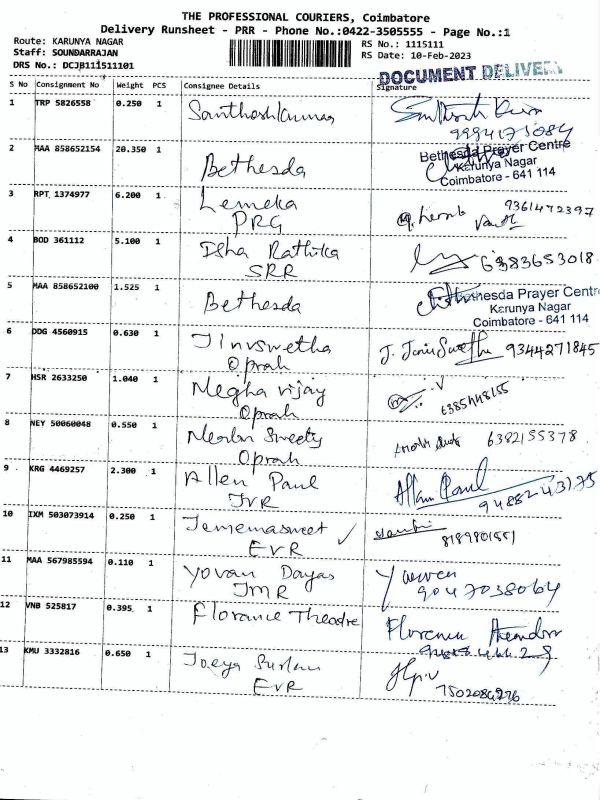 THE PROFESSIONAL COURIERS, Coimbatore
Delivery Runsheet - PRR - Phone No.:0422-3505555 - Page No.:1
Route: KARUNYA NAGAR
Staff: SOUNDARRAJAN
DRS No.: DCJB111511101
RS No.: 1115111
RS Date: 10-Feb-2023
DOCUMENT DELIVERY
S No Consignment No Weight PCS Consignee Details Signature
1 TRP 5826558 0.250 1 Santhoshkumar
9994173084
2 MAA 858652154 20.350 1 Bethesda
Bethesda Prayer Centre
Karunya Nagar
Coimbatore - 641 114
3 RPT 1374977 6.200 1 Lemeka 9361472397
PRG
4 BOD 361112 5.100 1 Isha Rathika 6383653018
SRR
5 MAA 858652100 1.525 1 Bethesda
Bethesda Prayer Centre
Karunya Nagar
Coimbatore - 641 114
6 DDG 4560915 0.630 1 Jinuswetha J. Jinu Swetha 9344271845
Oprah
7 HSR 2633250 1.040 1 Megha vijay
Oprah
8 NEY 50060048 0.550 1 Sweety 6382155378
Oprah
9 KRG 4469257 2.300 1 Allen Paul Allan Paul
JVR 9488243175
10 IXM 503073914 0.250 1 Jememasweet ✓
EVR 8189801551
11 MAA 567985594 0.110 1 Yovan Dayas
JMR 9047038064
12 VNB 525817 0.395 1 Florance Theodre
13 KMU 3332816 0.650 1 Joeya
EVR 7502084276